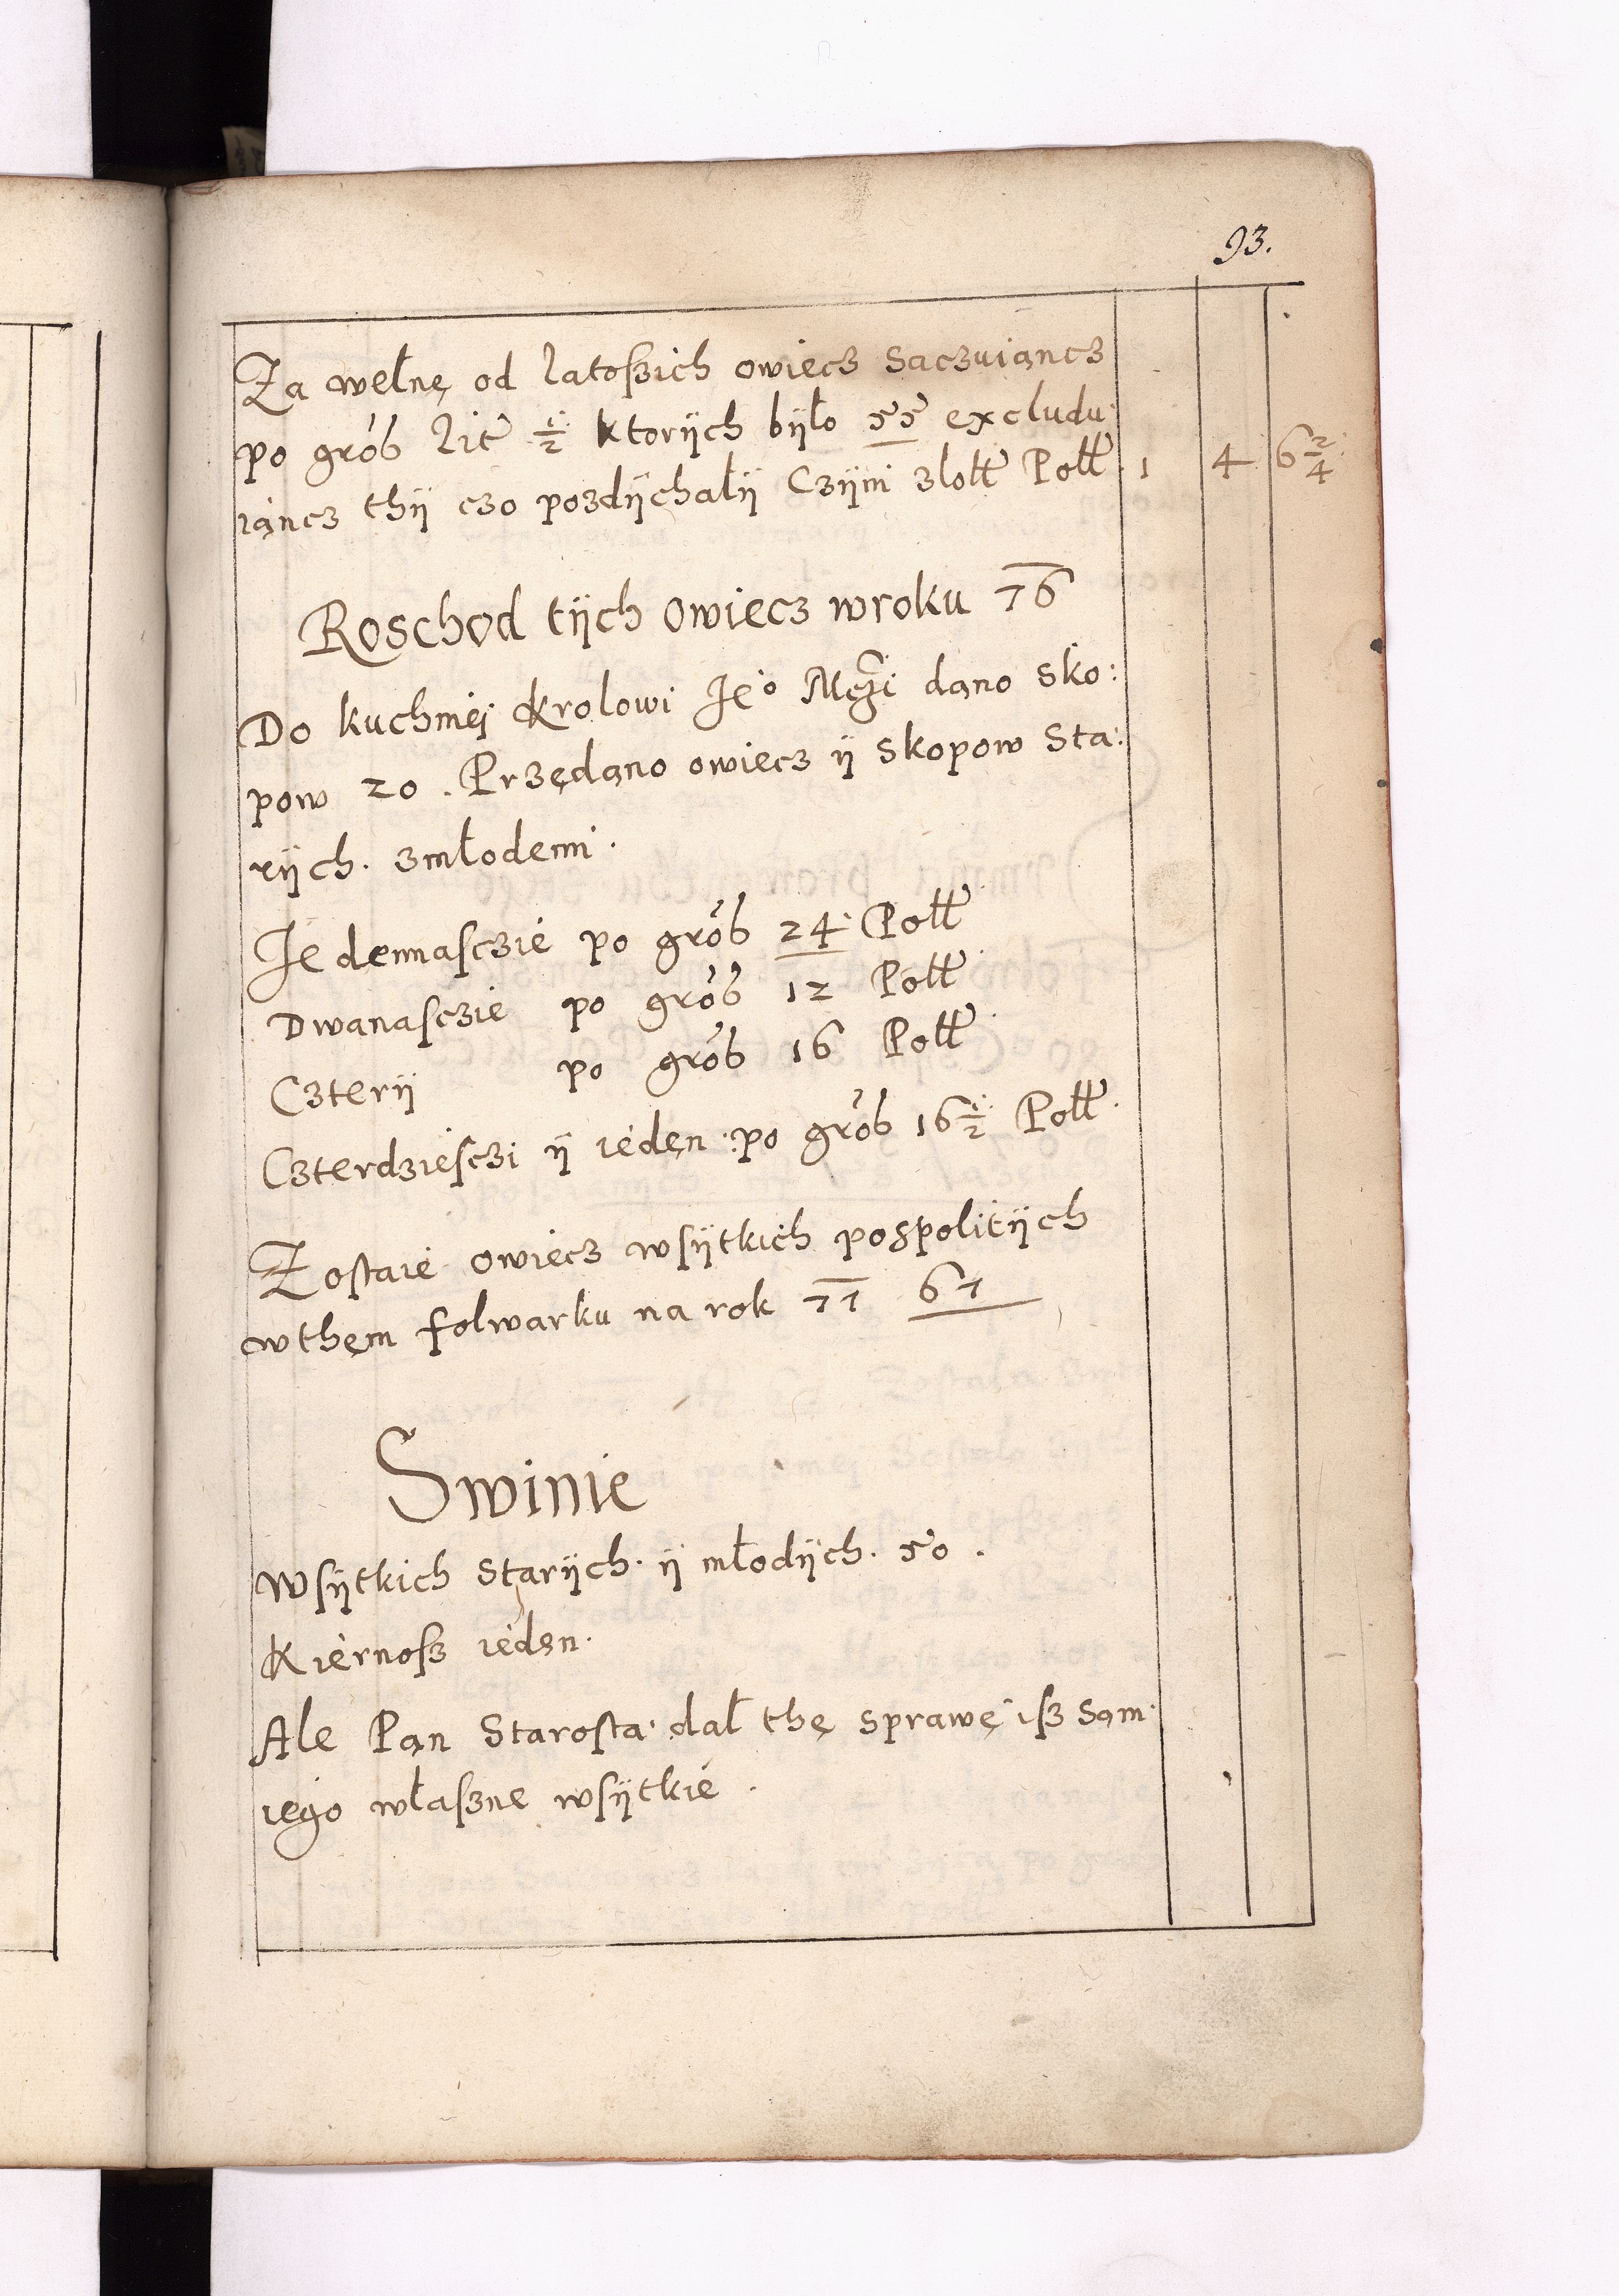 93.
Za wełnę od latoßich owiecz saczuiancz
po grob lit ½ ktorÿch bÿło 55 excludu
iąncz thÿ czo pozdÿchalÿ Czÿni zlott Poltt 1 4 6 2/4
Roschod tÿch owiecz wroku 76
Do kuchniej Krolowi Je° Mczi dano sko:
pow 20. Przędano owiecz ÿ skopow sta:
rÿch. zmłodemi.
Jedennasczie po grob 24 Poltt
Dwanasczie po grob 12 Poltt
Czterÿ po grob 16 Poltt
Czterdziesczi ÿ ieden po grob 16½ Poltt
Zostaie owiecz wsÿtkich pospolitÿch
wthem folwarku na rok 77 67
Swinie
Wsÿtkich starÿch ÿ młodÿch. 50.
Kiernosz ieden.
Ale Pan Starosta dał thę sprawę isz som
iego własznę wsÿtkie.